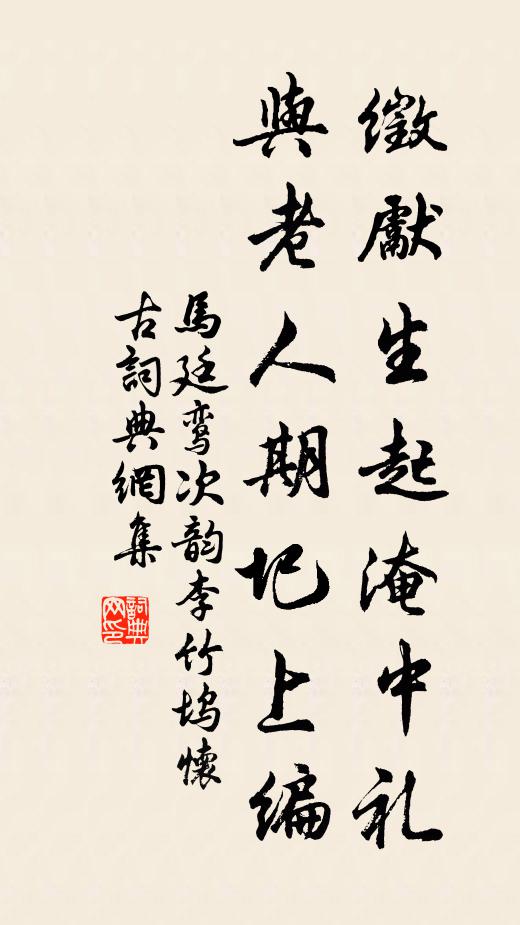 徵獻生起淹中礼
與老人期圯上编
馬廷鸾次韵李竹坞懷
古詞典網集
詞典网印